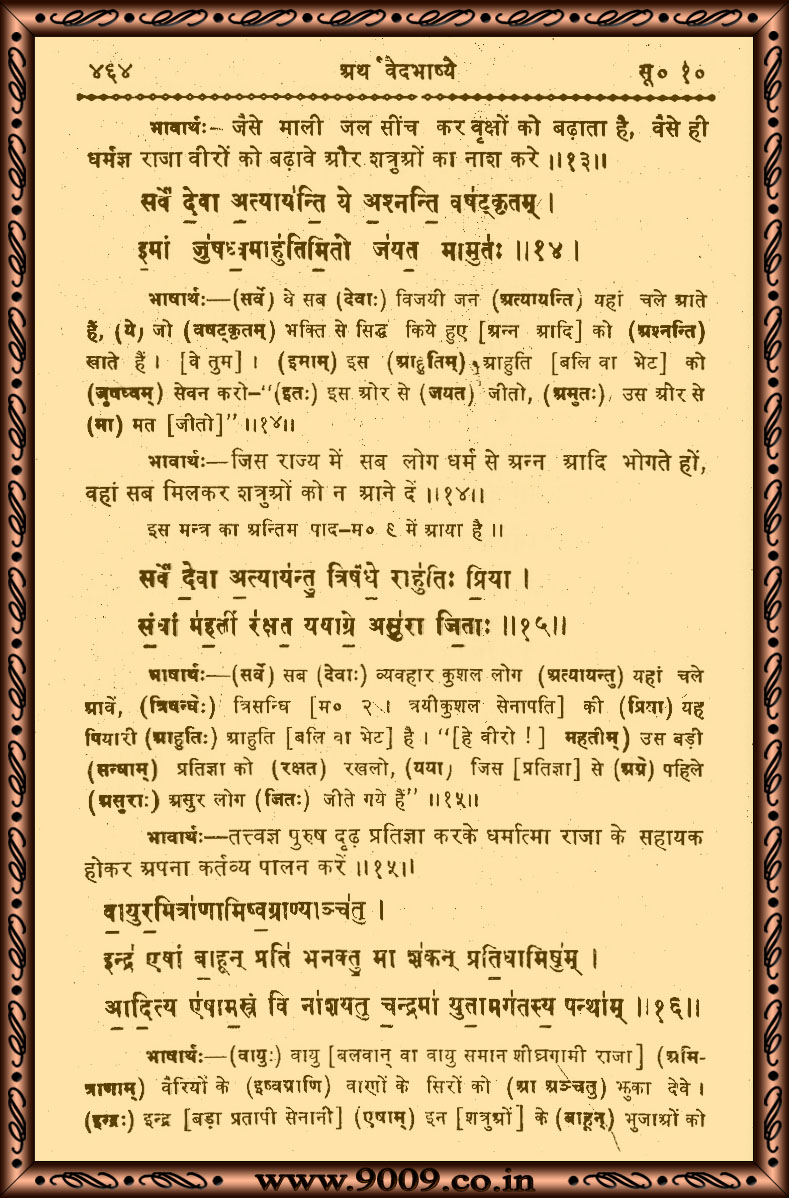 ४६४ अथर्ववेदभाष्ये सू० १०
भावार्थः- जैसे माली जल सींच कर वृक्षों को बढ़ाता है, वैसे ही
धर्मज्ञ राजा वीरों को बढ़ावे और शत्रुओं का नाश करे ॥१३॥
सर्वे॑ दे॒वा अ॒त्याय॑न्ति॒ ये अ॒श्नन्ति॒ वष॑ट्कृतम् ।
इ॒मां जु॑षध्व॒माहु॑तिमि॒तो ज॑यत॒ मामुतः॑ ॥१४।
भाषार्थः—(सर्वे) वे सब (देवाः) विजयी जन (अत्यायन्ति) यहां चले आते
हैं, (ये) जो (वषट्कृतम्) भक्ति से सिद्ध किये हुए [अन्न आदि] को (अश्नन्ति)
खाते हैं । [वे तुम] । (इमाम्) इस (आहुतिम्) आहुति [बलि वा भेट] को
(जुषध्वम्) सेवन करो–“(इतः) इस ओर से (जयत) जीतो, (अमुतः) उस ओर से
(मा) मत [जीतो]” ॥१४॥
भावार्थः—जिस राज्य में सब लोग धर्म से अन्न आदि भोगते हों,
वहां सब मिलकर शत्रुओं को न आने दें ॥१४॥
इस मन्त्र का अन्तिम पाद–म० ९ में आया है ॥
सर्वे॑ दे॒वा अ॒त्याय॑न्तु॒ त्रिष॑न्धे॒ राहु॑तिः प्रि॒या ।
सं॒धां म॑ह॒तीं र॑क्षत॒ ययाग्रे॒ असु॑रा जि॒ताः ॥१५॥
भाषार्थः—(सर्वे) सब (देवाः) व्यवहार कुशल लोग (अत्यायन्तु) यहां चले
आवें, (त्रिषन्धेः) त्रिसन्धि [म० २ । त्रयीकुशल सेनापति] की (प्रिया) यह
पियारी (आहुतिः) आहुति [बलि वा भेट] है । “[हे वीरो !] महतीम्) उस बड़ी
(सन्धाम्) प्रतिज्ञा को (रक्षत) रखलो, (यया) जिस [प्रतिज्ञा] से (अग्रे) पहिले
(असुराः) असुर लोग (जितः) जीते गये हैं” ॥१५॥
भावार्थः—तत्त्वज्ञ पुरुष दृढ़ प्रतिज्ञा करके धर्मात्मा राजा के सहायक
होकर अपना कर्तव्य पालन करें ॥१५॥
वा॒युर॒मित्रा॑णामिष्व॒ग्राण्याञ्च॑तु ।
इन्द्र॑ एषां बा॒हून् प्रति॑ भनक्तु॒ मा श॑कन् प्रति॒धामिषु॑म् ।
आ॒दि॒त्य ए॑षाम॒स्त्रं वि ना॑शयतु च॒न्द्रमा॑ यु॒तामग॑तस्य॒ पन्था॑म् ॥१६॥
भाषार्थः—(वायुः) वायु [बलवान् वा वायु समान शीघ्रगामी राजा] (अमि-
त्राणाम्) वैरियों के (इष्वग्राणि) वाणों के सिरों को (आ अञ्चतु) झुका देवे ।
(इन्द्रः) इन्द्र [बड़ा प्रतापी सेनानी] (एषाम्) इन [शत्रुओं] के (बाहून्) भुजाओं को
www.9009.co.in